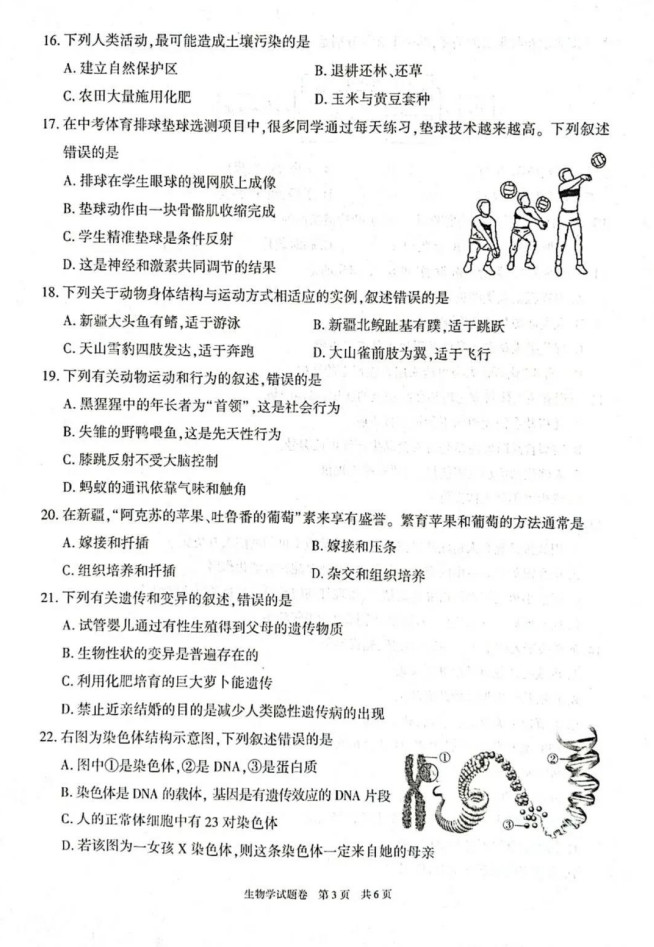 16. 下列人类活动,最可能造成土壤污染的是
A. 建立自然保护区 B. 退耕还林、还草
C. 农田大量施用化肥 D. 玉米与黄豆套种
17. 在中考体育排球垫球选测项目中,很多同学通过每天练习,垫球技术越来越高。下列叙述
错误的是
A. 排球在学生眼球的视网膜上成像
B. 垫球动作由一块骨骼肌收缩完成
C. 学生精准垫球是条件反射
D. 这是神经和激素共同调节的结果
18. 下列关于动物身体结构与运动方式相适应的实例,叙述错误的是
A. 新疆大头鱼有鳍,适于游泳 B. 新疆北鲵趾基有蹼,适于跳跃
C. 天山雪豹四肢发达,适于奔跑 D. 大山雀前肢为翼,适于飞行
19. 下列有关动物运动和行为的叙述,错误的是
A. 黑猩猩中的年长者为“首领”,这是社会行为
B. 失雏的野鸭喂鱼,这是先天性行为
C. 膝跳反射不受大脑控制
D. 蚂蚁的通讯依靠气味和触角
20. 在新疆,“阿克苏的苹果、吐鲁番的葡萄”素来享有盛誉。繁育苹果和葡萄的方法通常是
A. 嫁接和扦插 B. 嫁接和压条
C. 组织培养和扦插 D. 杂交和组织培养
21. 下列有关遗传和变异的叙述,错误的是
A. 试管婴儿通过有性生殖得到父母的遗传物质
B. 生物性状的变异是普遍存在的
C. 利用化肥培育的巨大萝卜能遗传
D. 禁止近亲结婚的目的是减少人类隐性遗传病的出现
22. 右图为染色体结构示意图,下列叙述错误的是
A. 图中①是染色体,②是 DNA,③是蛋白质
B. 染色体是 DNA 的载体, 基因是有遗传效应的 DNA 片段
C. 人的正常体细胞中有 23 对染色体
D. 若该图为一女孩 X 染色体,则这条染色体一定来自她的母亲
①
②
③
生物学试题卷 第 3 页 共 6 页